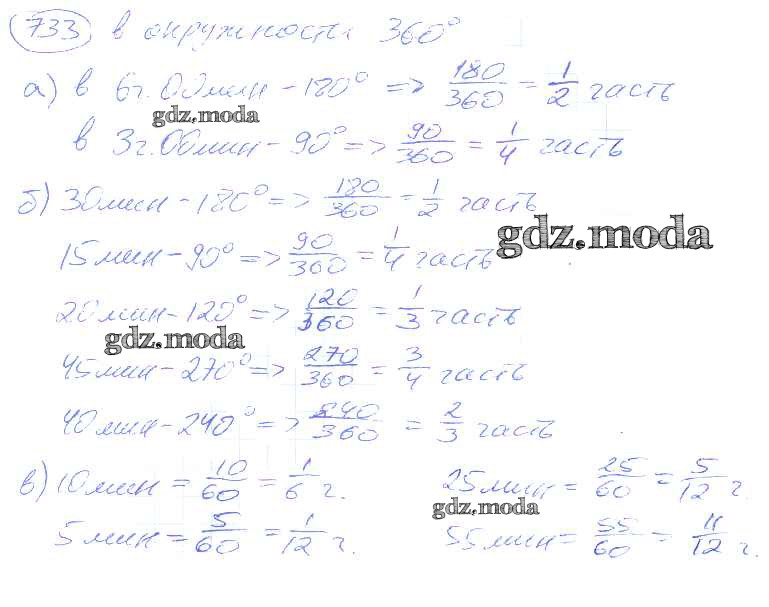 733 в окружности 360°
а) в 6г.00мин – 180° => 180/360 = 1/2 часть
gdz.moda
в 3г.00мин – 90° => 90/360 = 1/4 часть
б) 30мин – 180° => 180/360 = 1/2 часть
gdz.moda
15мин – 90° => 90/360 = 1/4 часть
20мин – 120° => 120/360 = 1/3 часть
gdz.moda
45мин – 270° => 270/360 = 3/4 часть
40мин – 240° => 240/360 = 2/3 часть
в) 10мин = 10/60 = 1/6 г. 25мин = 25/60 = 5/12 г.
gdz.moda
5мин = 5/60 = 1/12 г. 55мин = 55/60 = 11/12 г.